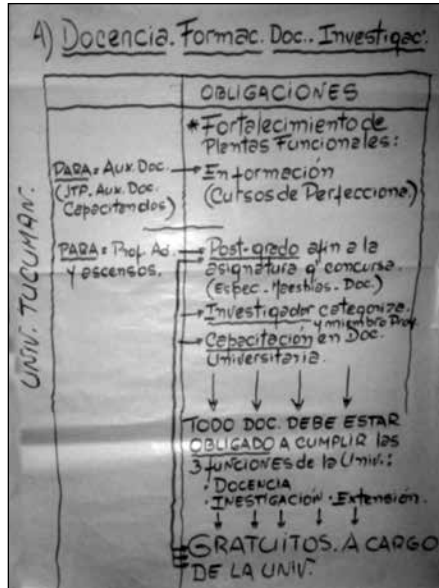 A) Docencia. Formac. Doc.. Investigac.
OBLIGACIONES
* Fortalecimiento de
Plantas Funcionales:
PARA = Aux. Doc.
(JTP. Aux. Doc.
Capacitandos)
En formación
(Cursos de Perfecciona.)
PARA = Prof. Ad.
y ascensos.
Post-grado afin a la
asignatura q' concursa.
(Espec. Maestrias. Doc.)
Investigador categoriza.
y miembro Proy.
Capacitación en Doc.
Universitaria.
TODO DOC. DEBE ESTAR
OBLIGADO A CUMPLIR las
3 funciones de la Univ.:
· DOCENCIA
· INESTIGACIÓN · Extensión.
GRATUITOS. A CARGO
DE LA UNIV.
UNIV. TUCUMAN.